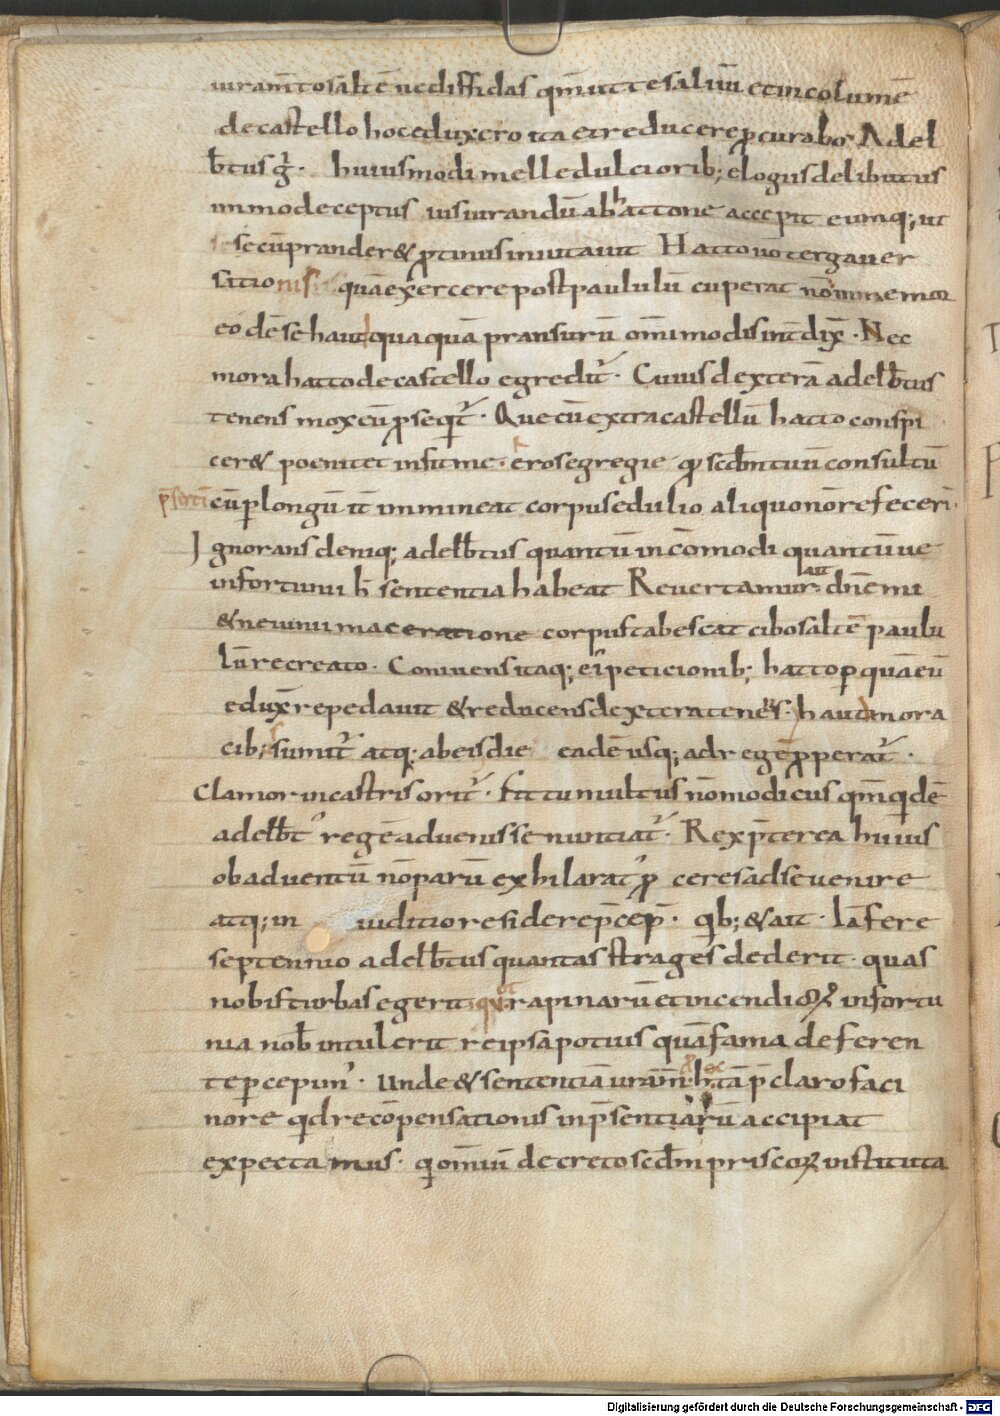 iuram̅to salte̅ ne diffidas qm̅ ut te saluu̅ et incolume̅
de castello hoc eduxero ita et reducere ꝓcurabo· Adel
b̅tus g̅· huiusmodi melle dulciorib; elogiis delibutus
immo deceptus iusiurandu̅ ab hattone accepit eumq; ut
secu̅ prander& ꝓtinus inuitauit Hatto u̅o tergauer
sationis qua̅ exercere post paululu̅ cuperat no̅ inmemor
eode̅ se haudquaqua̅ pransuru̅ om̅imodis int̅dix̅· Nec
mora hatto de castello egredit᷑· Cuius dextera̅ adelb̅tus
tenens mox eu̅ ꝓseqit᷑· Que cu̅ extra castellu̅ hatto conspi
cer& poenitet infit me· eros egregie ꝓsecb̅ntuu̅ consultu̅
p̅serti̅ cu̅ plongu̅ it̅ immineat corpus edulio aliquo no̅ refeceri̅·
Ignorans deniq; adelb̅tus quantu̅ inco̅modi quantu̅ue
infortunii h̅ sententia habeat Reuertamur ait dn̅e mi
& ne uimi maceratione corpus tabescat cibo salte̅ paulu
lu̅ recreato· Coniuens itaq; ei peticionib; hatto ꝑ qua̅ eu̅
edux̅ repedauit & reducens dextera tenens· haut mora
cib; sumit᷑ atq· abeis die eade̅ usq; ad rege̅ ꝓperat᷑·
Clamor in castris orit᷑· fit tumultus no̅ modicus qm̅ qide̅
adelb̅t᷒ rege̅ aduenisse nuntiat᷑· Rex p̅terea huius
ob aduentu̅ no̅ paru̅ exhilarat᷒ ꝓceres ad se uenire
atq; in iuditio residere p̅cep̅· qib; & ait· Ia̅ fere
septennio adelb̅tus quantas strages dederit· quas
nobis turbas egerit que rapinaru̅ et incendioꝝ infortu
nia nob̅ intulerit reipsa potius qua̅ fama deferen
te ꝑcepim᷒· Unde & sententia̅ ur̅am hec ta̅ p̅claro faci
nore qid reco̅pensationis inp̅sentiaru̅ accipiat
expectamus· qi om̅iu̅ decreto secd̅m priscoꝝ instituta
Digitalisierung gefördert durch die Deutsche Forschungsgemeinschaft - DFG